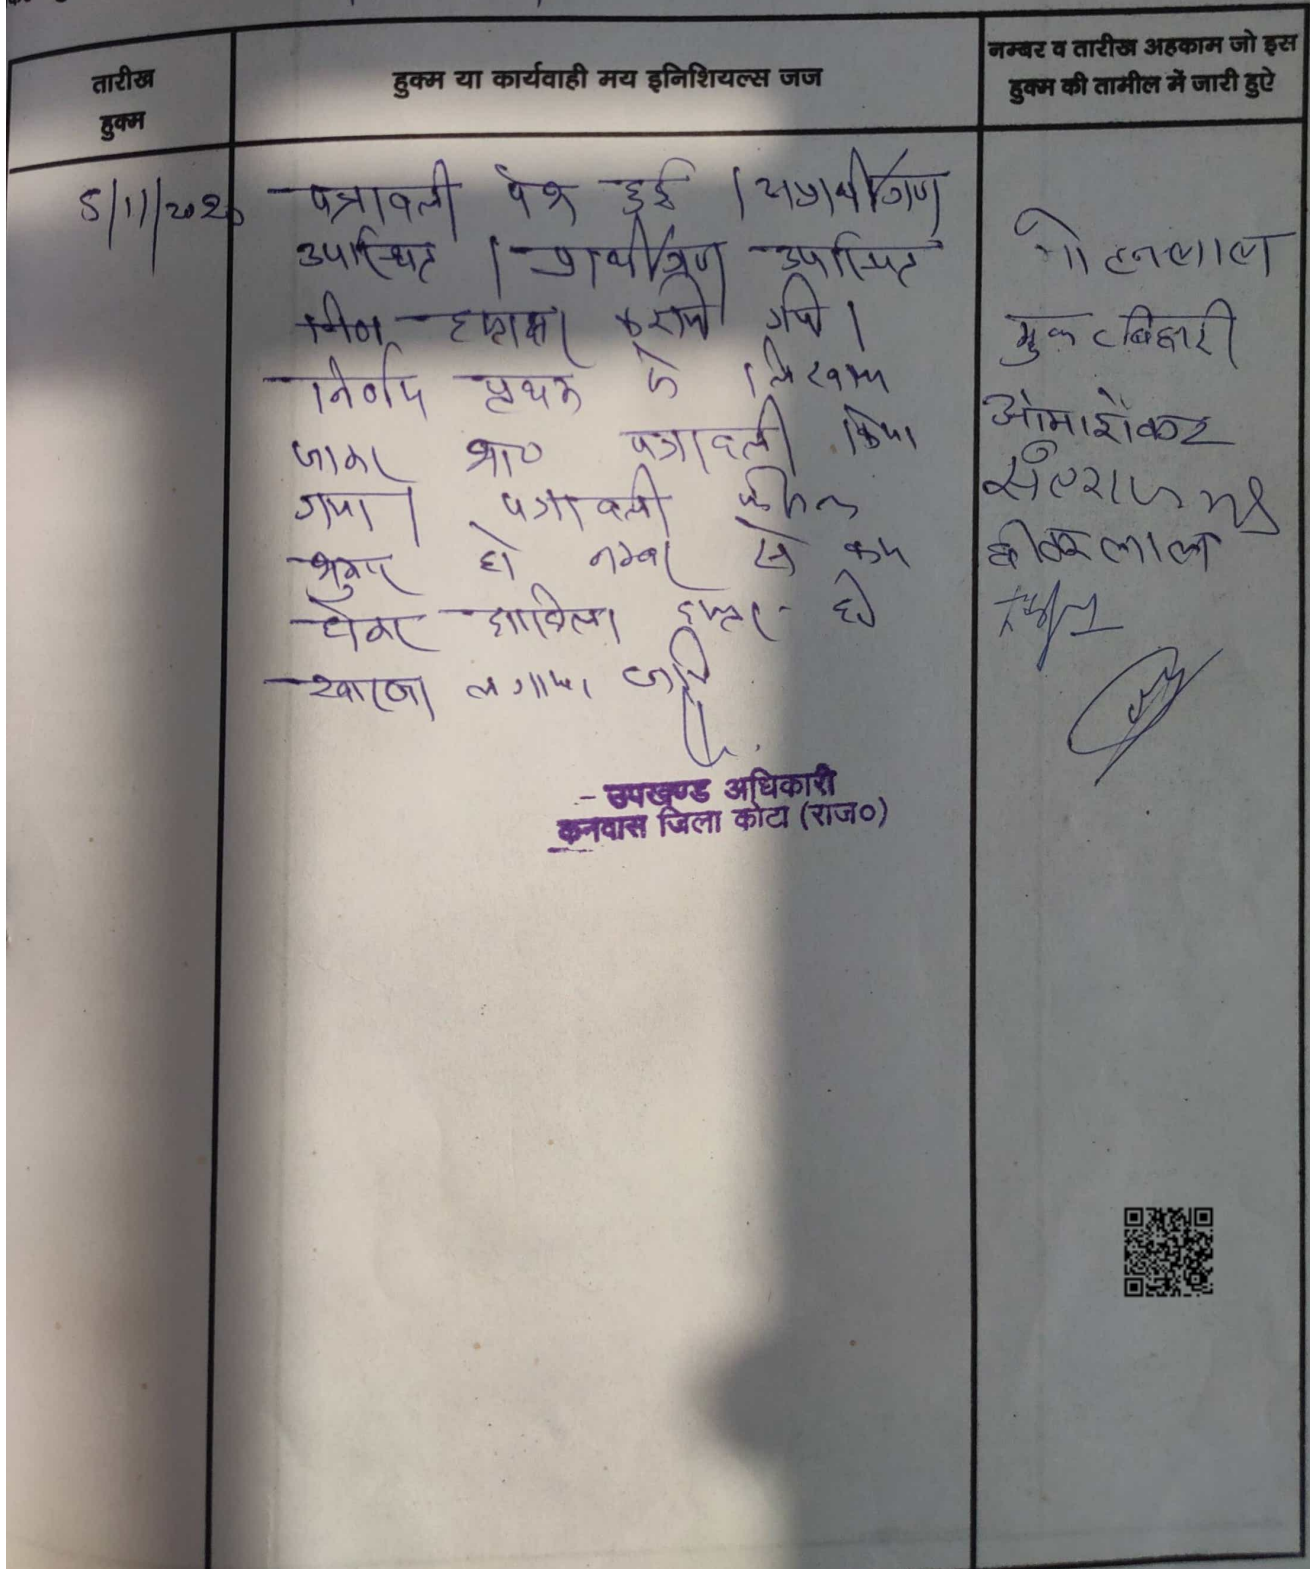 तारीख
हुक्म
हुक्म या कार्यवाही मय इनिशियल्स जज
नम्बर व तारीख अहकाम जो इस
हुक्म की तामील में जारी हुऐ
5/11/2020
पत्रावली पेश हुई । अप्रार्थीगण
उपस्थित । प्रार्थीगण उपस्थित
कराये गये ।
निर्णय पृथक से लिखाया
जाकर शा० पत्रावली किया
गया । पत्रावली फैसल
शुमार हो नम्बर से कम
होकर दाखिल दफ्तर हो
लगाया
उपखण्ड अधिकारी
कनवास जिला कोटा (राज०)
मोहनलाल
मुकटबिहारी
ओमाशंकर
छीतरलाल